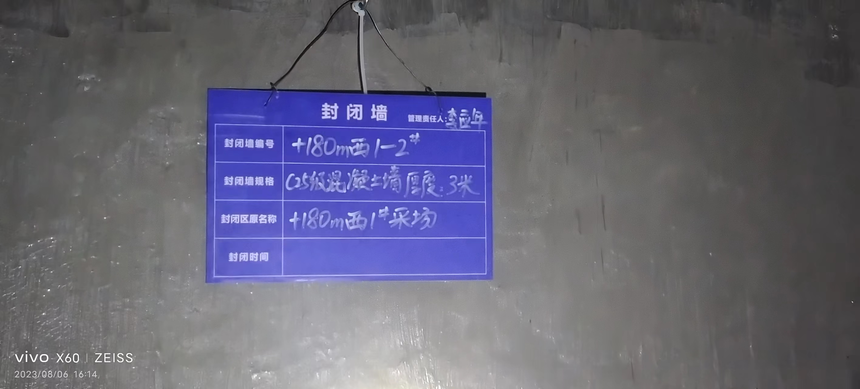 封闭墙
管理责任人:李立年
封闭墙编号 +180m西1-2#
封闭墙规格 C25级混凝土墙厚度:3米
封闭区原名称 +180m西1#采场
封闭时间
vivo X60 | ZEISS
2023/08/06 16:14